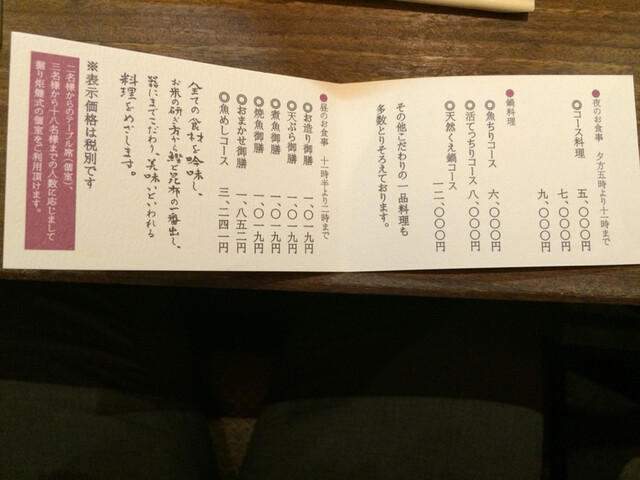 ●夜のお食事　夕方五時より十一時まで
◎コース料理　五、〇〇〇円
七、〇〇〇円
九、〇〇〇円
●鍋料理
◎魚ちりコース　六、〇〇〇円
◎活てっちりコース　八、〇〇〇円
◎天然くえ鍋コース
一二、〇〇〇円
その他こだわりの一品料理も
多数とりそろえております。
●昼のお食事　十一時半より二時まで
◎お造り御膳　一、〇一九円
◎天ぷら御膳　一、〇一九円
◎煮魚御膳　一、〇一九円
◎焼魚御膳　一、〇一九円
◎おまかせ御膳　一、八五二円
◎魚めしコース　三、二四一円
全ての食材を吟味し、
お米の研ぎ方から鰹と昆布の一番出し、
器にまでこだわり、美味いといわれる
料理をめざします。
※表示価格は税別です
二名様からのテーブル席（個室）、
三名様から十八名様までの人数に応じまして
掘り炬燵式の個室をご利用頂けます。